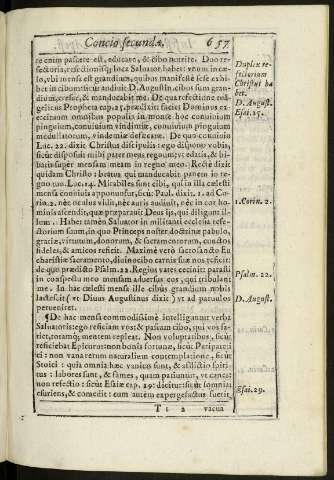 Concio secunda. 657
re enim pascere est, educare, & cibo nutrire. Duo re-
fectoria, refectionisq; loca Saluator habet: vnum in cæ-
lis, vbi mensa est grandium, quibus manifestè sese exhi-
bet in cibum: sicut audiuit D. Augustin. cibus sum gran-
dium, cresce, & manducabis me. De qua refectione reli-
giosicus Propheta cap. 25. prædixit: faciet Dominus ex-
ercituum omnibus populis in monte hoc conuiuium
pinguium, conuiuium vindimiæ, conuiuium pinguium
medullatorum, vindemiæ defæcatæ. De quo conuiuio
Luc. 22. dixit Christus discipulis: ego dispono vobis,
sicut disposuit mihi pater meus regnum; vt edatis, & bi-
batis super mensam meam in regno meo. Rectè dixit
quidam Christo: beatus qui manducabit panem in re-
gno tuo. Luc. 14. Mirabiles sunt cibi, qui in illa cælesti
mensa conuiuis apponuntur, sicut Paul. dixit. 1. ad Co-
rin. 2. nec oculus vidit, nec auris audiuit, nec in cor ho-
minis ascendit, quæ præparauit Deus ijs, qui diligunt il-
lum. Habet tamen Saluator in militanti ecclesia refe-
ctorium suum, in quo Princeps noster, doctrinæ pabulo,
gratiæ, virtutum, donorum, & sacramentorum, cunctos
fideles, & amicos reficit. Maximè verò sacrosancto Eu-
charistiæ sacramento, diuino cibo carnis suæ nos reficit:
de quo prædicto Psalm. 22. Regius vates cecinit: parasti
in conspectu meo mensam aduersus eos, qui tribulant
me. In hac cælesti mensa ille cibus grandium nobis
lactescit (vt Diuus Augustinus dixit) vt ad paruulos
perueniret.
¶ De hac mensa commodissimè intelliguntur verba
Saluatoris: ego reficiam vos: & pascam cibo, qui vos sa-
tiet, totamq; mentem repleat. Non voluptatibus, sicut
reficiebat Epicurus: non bonis fortunæ, sicut Peripateti-
ci: non vana rerum naturalium contemplatione, sicut
Stoici: quia omnia hæc vanitas sunt, & afflictio spiri-
tus: labores sunt, & fames, quam pariunt, vt cane:
non refectio: sicut Esaiæ cap. 29: dicitur: sicut somniat
esuriens, & comedit: cum autem expergefactus fuerit,
Tt 2 vacua
Duplex re-
fectorium
Christus ha
bet.
D. August.
Esai. 25.
1. Corin. 2.
Psalm. 22.
D. August.
Esai. 29.